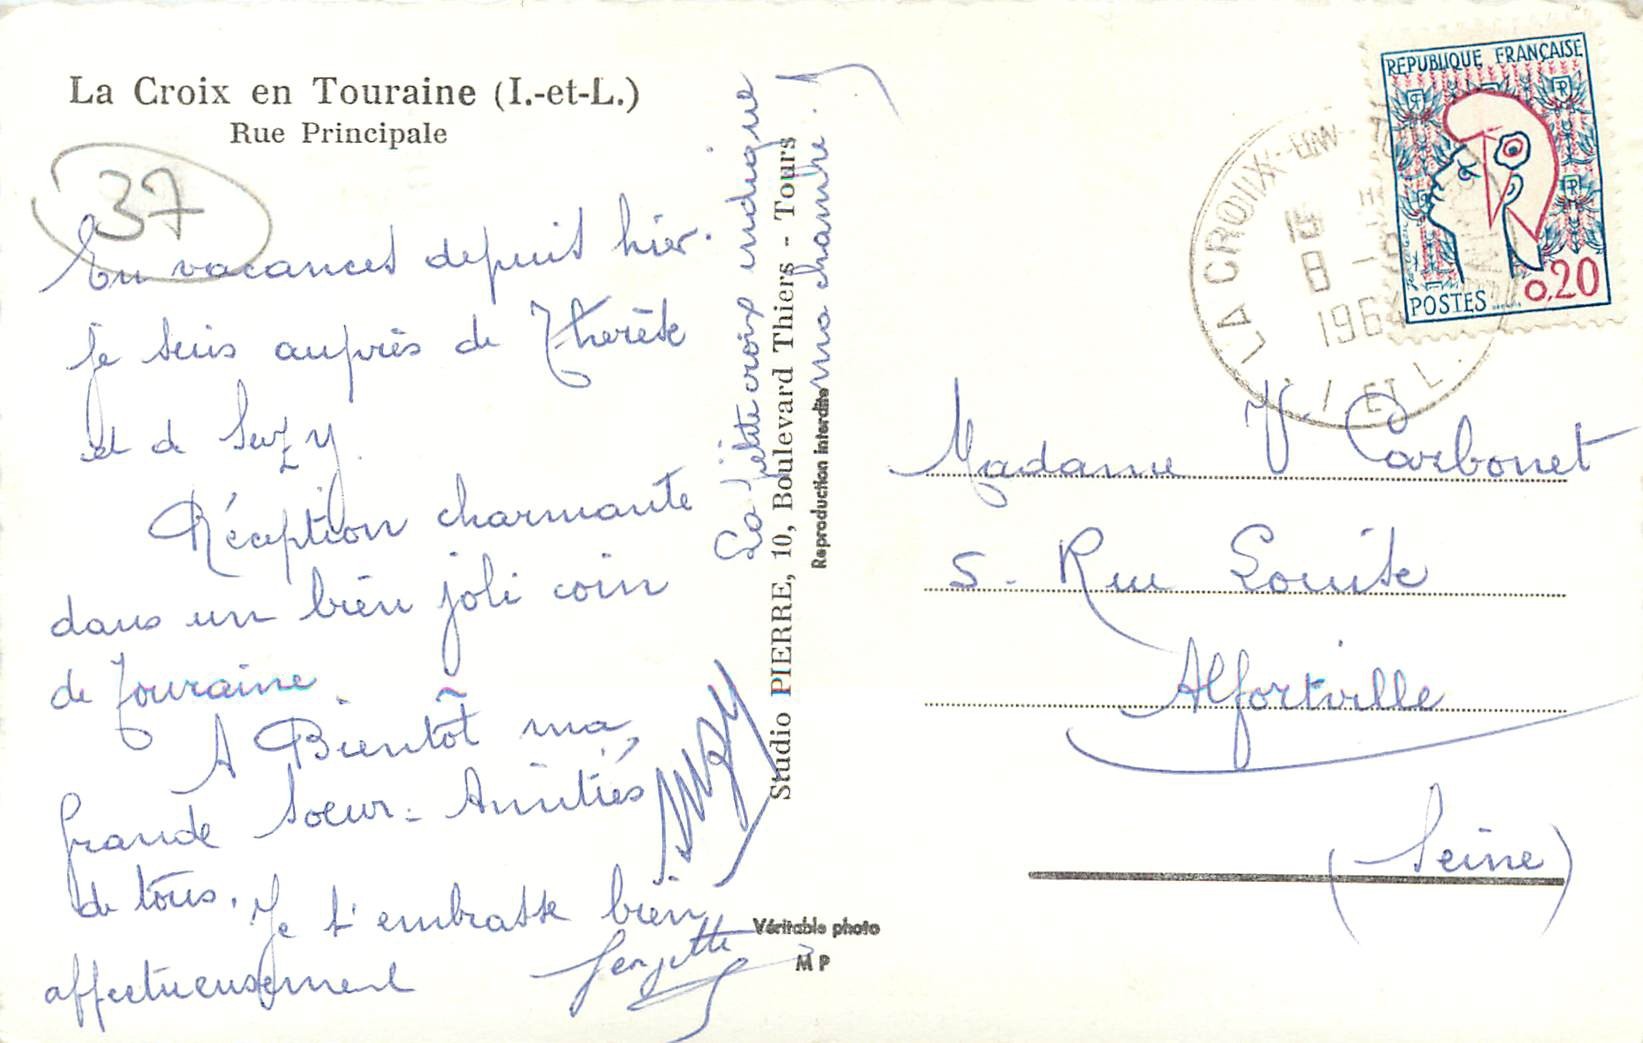 La Croix en Touraine (I.-et-L.)
Rue Principale
37
En vacances depuis hier.
je suis auprès de Thérèse
et de Suzy
Réception charmante
dans un bien joli coin
de Touraine.
A Bientôt ma
grande soeur. Amitiés
de tous. Je t'embrasse bien
affectueusement
Suzy
La petite croix indique
ma chambre.
Studio PIERRE, 10, Boulevard Thiers - Tours
Reproduction interdite
Véritable photo
MP
REPUBLIQUE FRANÇAISE
POSTES
0,20
LA CROIX-EN-T
15
8 -9
1964
I. ET L.
Madame V Carbonet
5. Rue Louise
Alfortville
(Seine)